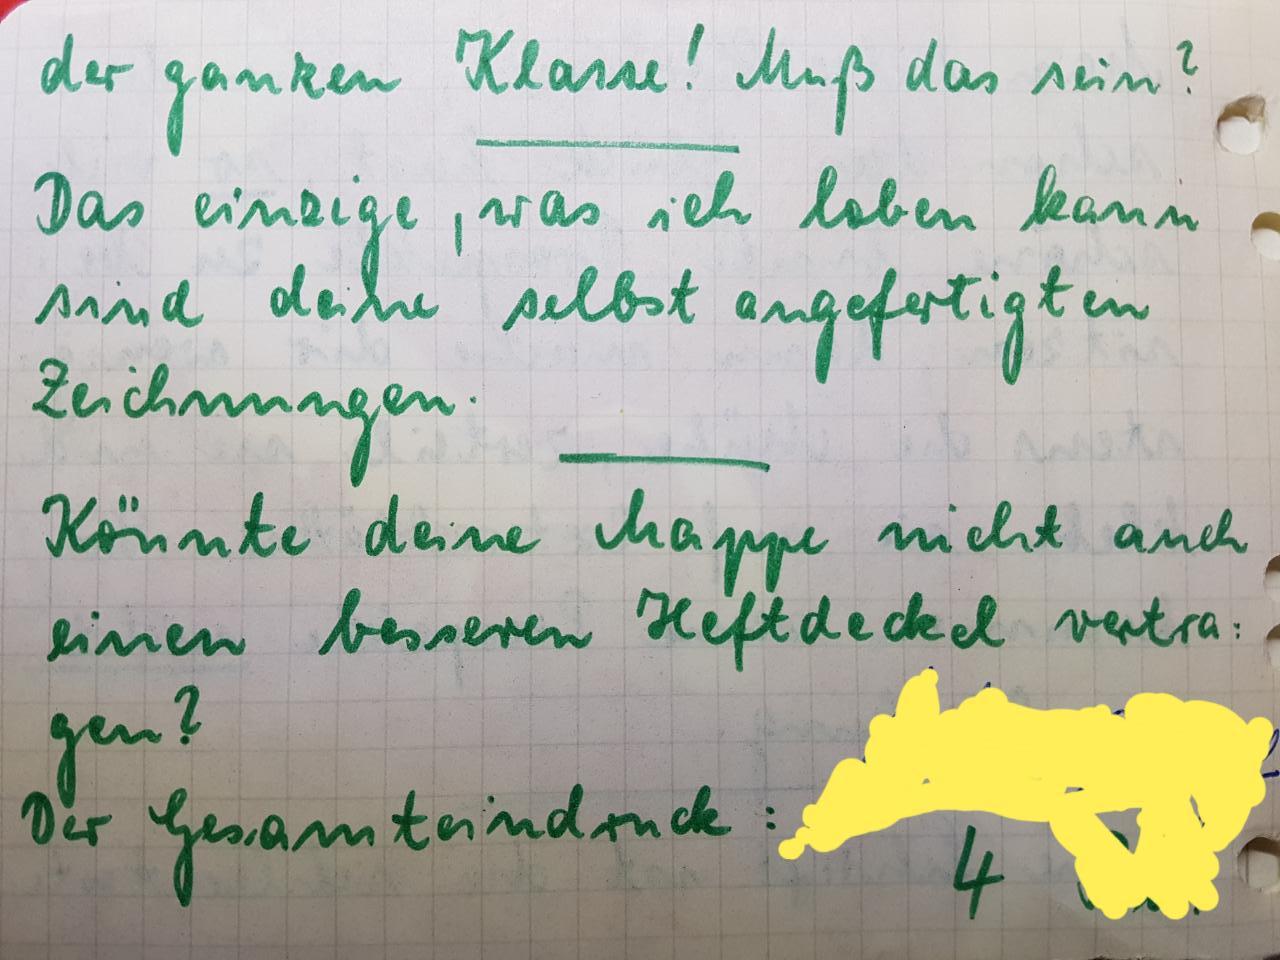 der ganzen Klasse! Muß das sein?
Das einzige, was ich loben kann
sind deine selbst angefertigten
Zeichnungen.
Könnte deine Mappe nicht auch
einen besseren Heftdeckel vertra:
gen?
Der Gesamteindruck:
4